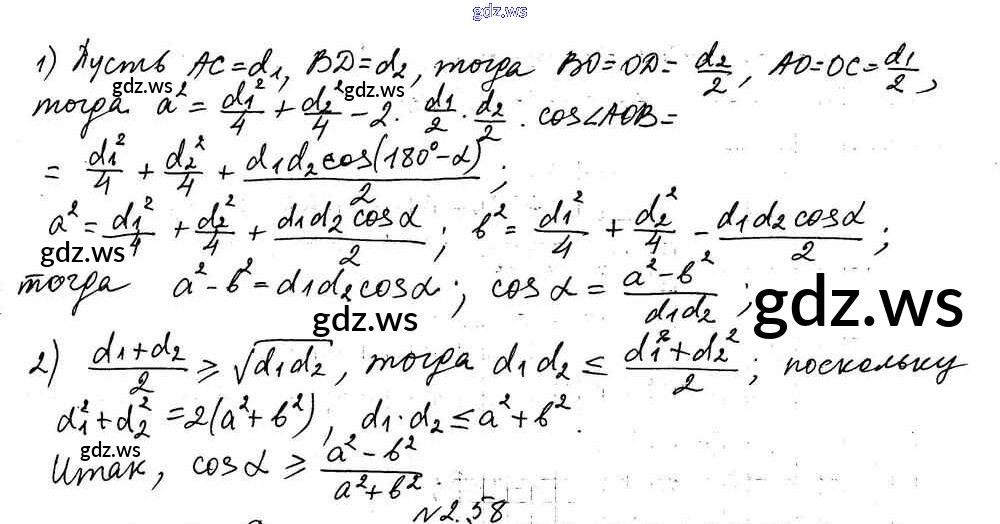 gdz.ws
1) Пусть AC=d₁, BD=d₂, тогда BO=OD= d₂/2, AO=OC= d₁/2,
gdz.ws
тогда a² = d₁²/4 + d₂²/4 - 2 · d₁/2 · d₂/2 · cos∠AOB =
= d₁²/4 + d₂²/4 + d₁d₂cos(180°-α)/2 ;
a² = d₁²/4 + d₂²/4 + d₁d₂cosα/2 ; b² = d₁²/4 + d₂²/4 - d₁d₂cosα/2 ;
gdz.ws
gdz.ws
тогда a²-b² = d₁d₂cosα ; cosα = (a²-b²)/(d₁d₂) ;
gdz.ws
gdz.ws
2) (d₁+d₂)/2 ≥ √(d₁d₂), тогда d₁d₂ ≤ (d₁²+d₂²)/2 ; поскольку
d₁²+d₂² = 2(a²+b²), d₁·d₂ ≤ a²+b².
gdz.ws
Итак, cosα ≥ (a²-b²)/(a²+b²).
N2.58